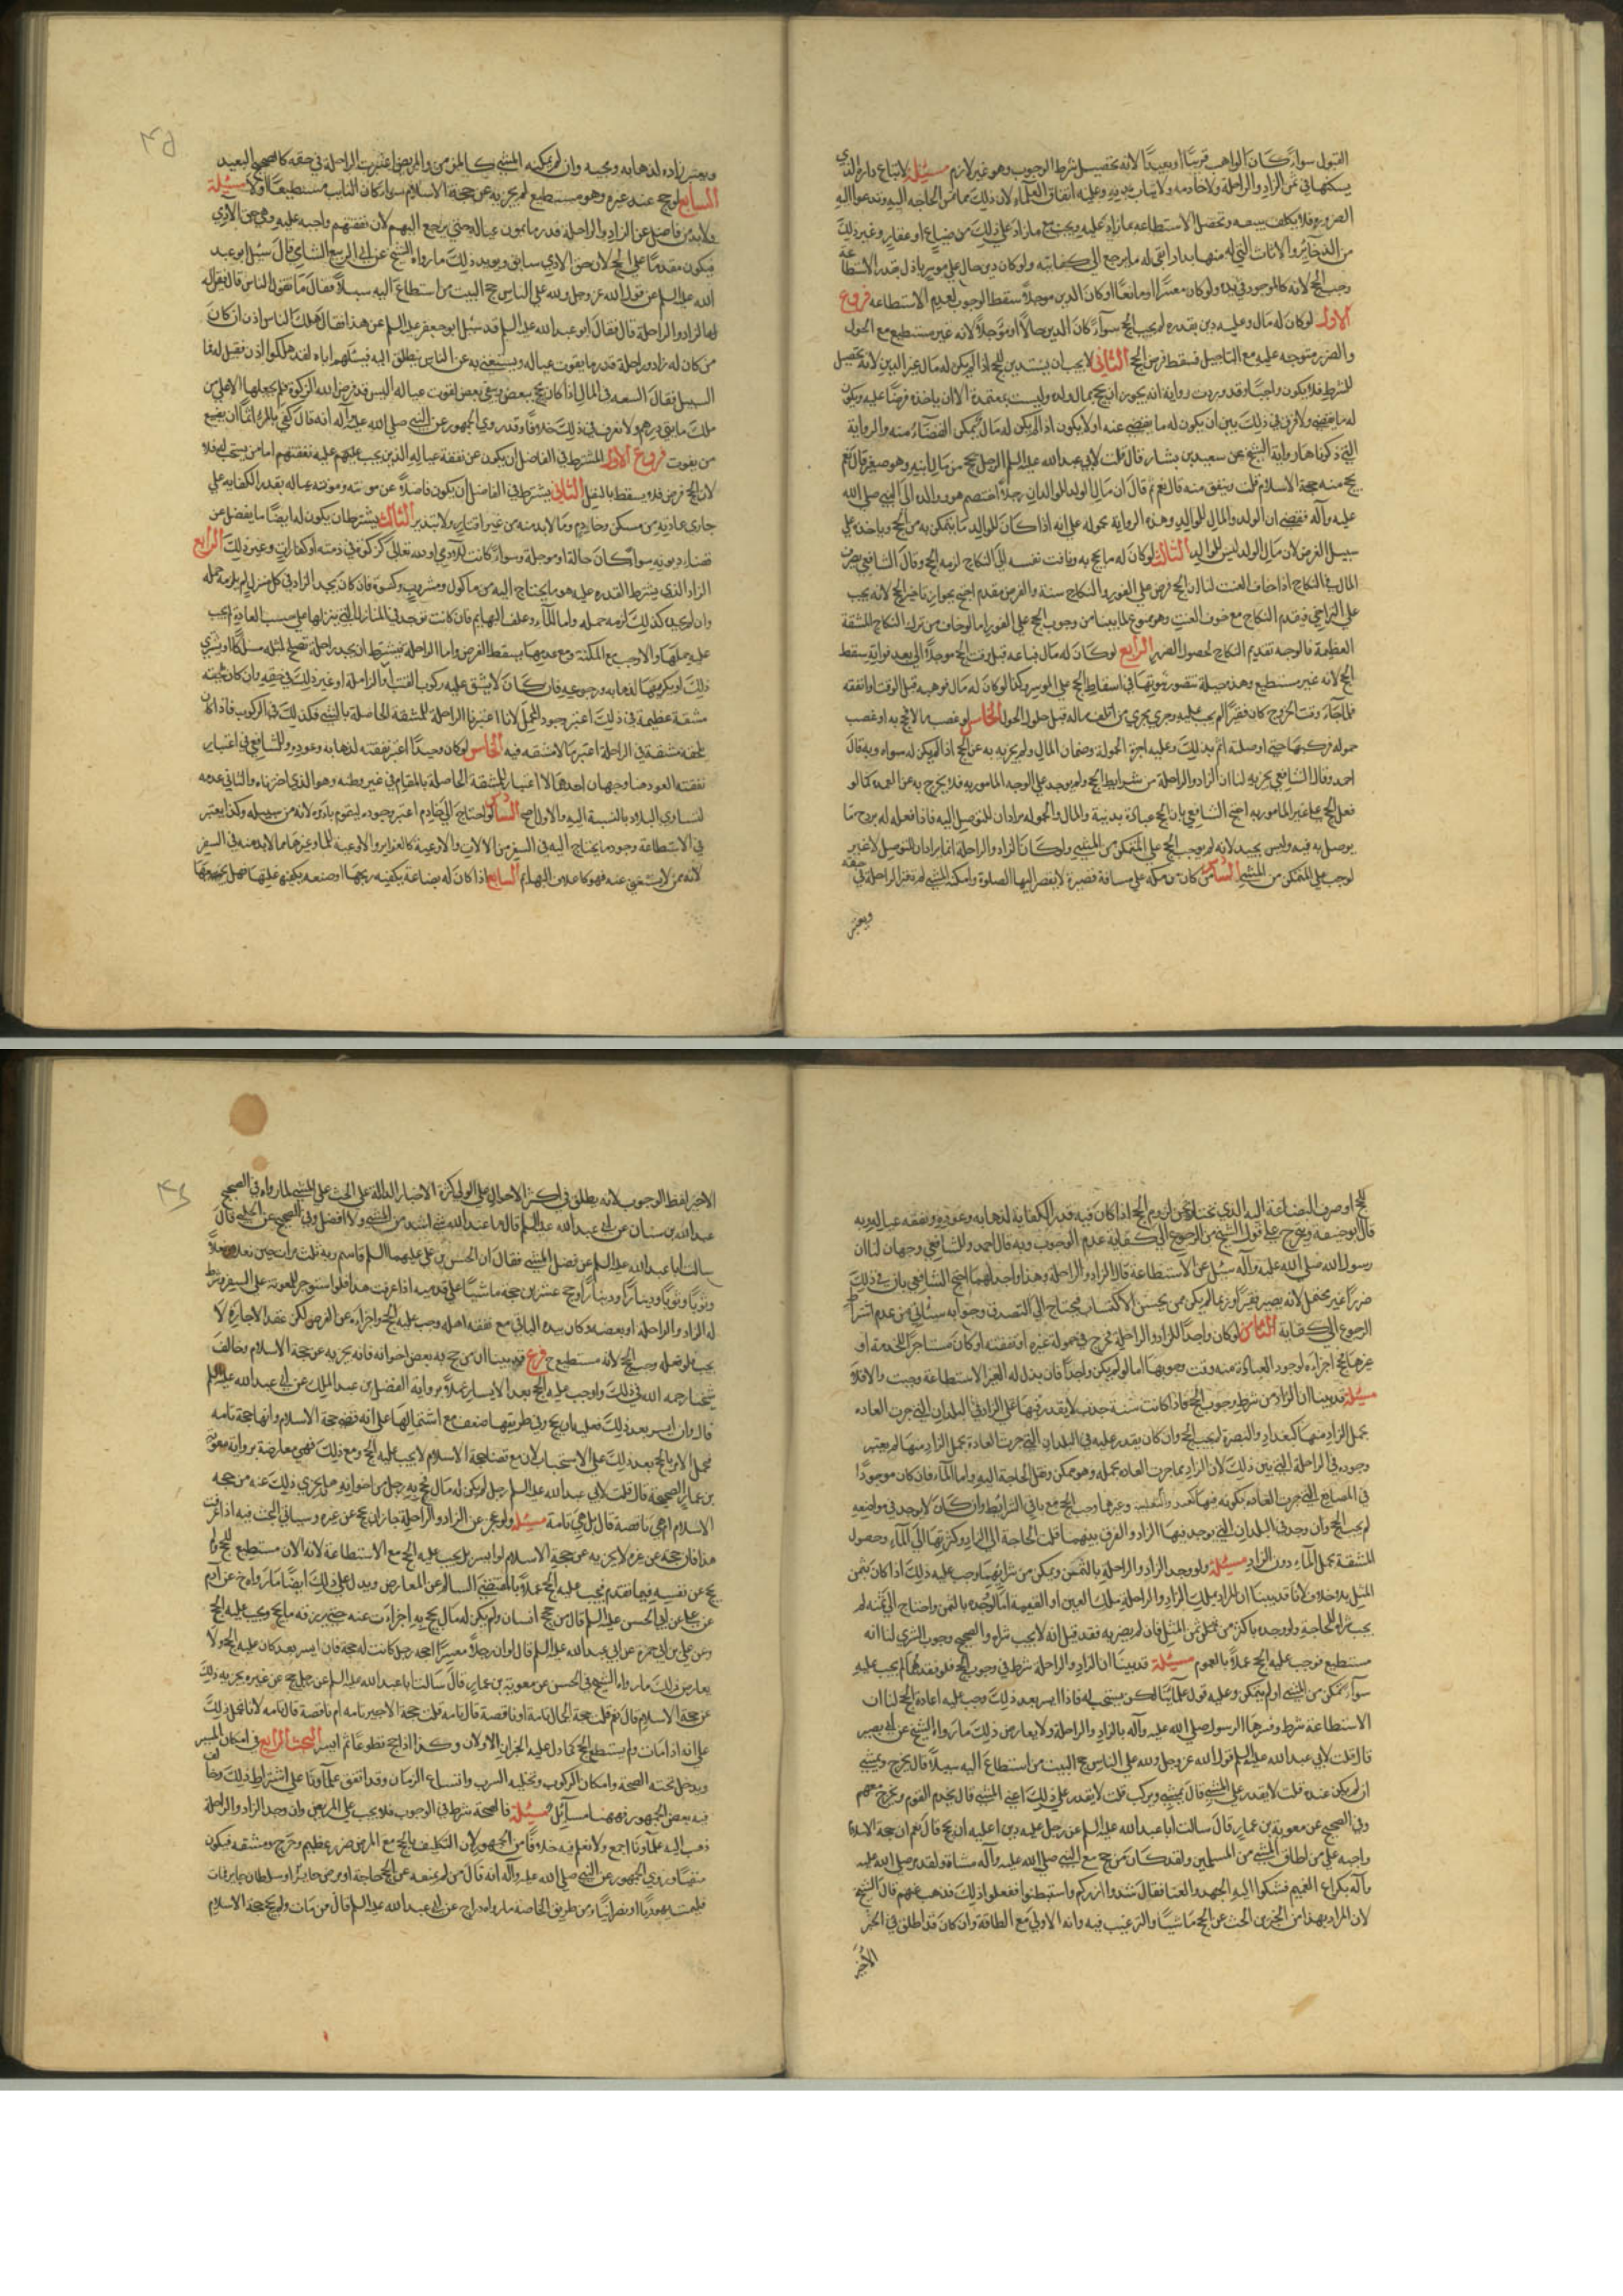 القبول سواء كان الواهب قريبًا او بعيدًا لانه تحصيل شرط الوجوب وهو غير لازم مسئلة لا تباع داره التي
يسكنها في ثمن الزاد والراحلة ولا خادمه ولا ثياب بدنه وعليه اتفاق العلماء لان ذلك مما تمس الحاجة اليه وتدعوا اليه
الضرورة فلا يكلف ببيعه وتحصل الاستطاعة بما زاد عليه ويجب بيع ما زاد على ذلك من ضياع او عقار وغير ذلك
من الذخاير والاثاث التي له منها بد اذا بقي له ما يرجع الى كفايته ولو كان دين حال على موسر باذل بقدر الاستطاعة
وجب الحج لانه كالموجود في يده ولو كان معسرًا او مانعًا او كان الدين موجلاً سقط الوجوب لعدم الاستطاعه فروع
الاول لو كان له مال وعليه دين بقدره لم يجب الحج سواء كان الدين حالاً او مؤجلاً لانه غير مستطيع مع الحلول
والضرر متوجه عليه مع التاجيل فسقط فرض الحج الثاني لا يجب ان يستدين للحج اذا لم يكن له مال غير الدين لانه تحصيل
للشرط فلا يكون واجبًا وقد وردت رواية انه يجوز ان يحج بمال ولده وليست بمعتمدة الا ان ياخذه قرضًا عليه ويكون
له ما يقضيه ولا فرق في ذلك بين ان يكون له ما يقضي عنه او لا يكون اذا لم يكن له مال يمكن القضاء منه والرواية
التي ذكرناها رواية الشيخ عن سعيد بن يسار قال قلت لابي عبد الله عليه السلم الرجل يحج من مال ابنه وهو صغير قال نعم
يحج منه حجة الاسلام قلت وينفق منه قال نعم ثم قال ان مال الولد للوالد ان رجلاً اختصم هو ووالده الى النبي صلى الله
عليه وآله فقضى ان الولد والمال للوالد وهذه الرواية محمولة على انه اذا كان للوالد ما يتمكن به من الحج وياخذه على
سبيل القرض لان مال الولد ليس للوالد الثالث لو كان له ما يحج به وتاقت نفسه الى النكاح لزمه الحج وقال الشافعي يصرف
المال في النكاح اذا خاف العنت لنا ان الحج فرض على الفور والنكاح سنة والفرض مقدم احتج بجواز تاخير الحج لانه يجب
على التراخي فقدم النكاح مع خوف العنت وهو ممنوع لما بينا من وجوب الحج على الفور اما لو خاف من ترك النكاح المشقة
العظيمة فالوجه تقديم النكاح لحصول الضرر الرابع لو كان له مال فباعه قبل وقت الحج موجلاً الى بعد فواته سقط
الحج لانه غير مستطيع وهذه حيلة يتصور ثبوتها في اسقاط الحج على الموسر وكذا لو كان له مال فوهبه قبل الوقت او انفقه
فلما جاء وقت الخروج كان فقيرًا لم يجب عليه وجرى مجرى من اتلف ماله قبل حلول الحول الخامس لو غصب مالا فحج به او غصب
حموله فركبها حتى اوصلته اثم بذلك وعليه اجرة الحمولة وضمان المال ولم يجزيه به عن الحج اذا لم يكن له سواه وبه قال
احمد وقال الشافعي يجزيه لنا ان الزاد والراحلة من شرايط الحج ولم يوجد على الوجه المامور به فلا يخرج به عن العهدة كما لو
فعل الحج على غير المامور به احتج الشافعي بان الحج عبادة بدنية والمال والحموله يرادان للتوصل اليه فاذا فعله لم يقدح ما
يوصل به فيه وليس بجيد لانه لم يوجب الحج على المتمكن من المشي ولو كان الزاد والراحلة انما يرادان للتوصل لا غير
لوجب على المتمكن من المشي السادس من كان من مكة على مسافة قصيرة لا يقصر اليها الصلوة وامكنه المشي لم تعتبر الراحلة في حقه
ويعتبر
ويعتبر زاده لذهابه ومجيئه وان لم يمكنه المشي كالزمن والمريض اعتبرت الراحلة في حقه كالصحيح البعيد
السابع لو حج عنه غيره وهو مستطيع لم يجزيه عن حجة الاسلام سواء كان النايب مستطيعًا اولا مسئلة
ولابد من فاضل عن الزاد والراحلة قدر ما يمون عياله حتى يرجع اليهم لان نفقتهم واجبة عليه وهي حق لآدمي
فيكون مقدمًا على الحج لان حق الادمي سابق ويويد ذلك ما رواه الشيخ عن ابي الربيع الشامي قال سئل ابو عبد
الله عليه السلم عن قول الله عز وجل ولله على الناس حج البيت من استطاع اليه سبيلاً فقال ما تقول الناس قال يقولون
لها الزاد والراحلة قال فقال ابو عبد الله عليه السلم قد سئل ابو جعفر عليه السلم عن هذا فقال هلك الناس اذن ان كان
من كان له زاد وراحلة قدر ما يقوت عياله ويستغني به عن الناس ينطلق اليه فيسئلهم اياه لقد هلكوا اذن فقيل له فما
السبيل فقال السعة في المال اذا كان يحج ببعض ويبقي بعض لقوت عياله اليس قد فرض الله الزكوة فلم يجعلها الا على من
ملك مايتي درهم ولا نعرف في ذلك خلافًا وقد روى الجمهور عن النبي صلى الله عليه وآله انه قال كفى بالمرء اثمًا ان يضيع
من يقوت فروع الاول المشترط في الفاضل ان يكون عن نفقة عياله الذين يجب عليهم عليه نفقتهم اما من يستحب فلا
لان الحج فرض فلا يسقط بالنفل الثاني يشترط في الفاضل ان يكون فاضلاً عن مونته ومونة عياله بقدر الكفاية على
جاري عادته من مسكن وخادم وما لابد منه من غير اقتار ولا تبذير الثالث يشترط ان يكون له ايضًا ما يفضل عن
قضاء ديونه سواء كان حالة او موجلة وسواء كانت لآدمي او لله تعالى كزكوة في ذمته او كفارات وغير ذلك الرابع
الزاد الذي يشترط القدره عليه هو ما يحتاج اليه من ماكول ومشروب وكسوة فان كان يجد الزاد في كل منزل لم يلزمه حمله
وان لم يجد كذلك لزمه حمله واما الماء وعلف البهايم فان كانت توجد في المنازل التي ينزلها على حسب العادة لم يجب
عليه حملها والا وجب مع المكنة ومع عدمها يسقط الفرض واما الراحلة فيشترط ان يجد راحلة تصلح لمثله
ذلك او يكريها لذهابه ورجوعه فان كان لا يشق عليه ركوب القتب او الزاملة او غير ذلك في حقه وان كان يلحقه
مشقة عظيمة في ذلك اعتبر وجود المحمل لانا اعتبرنا الراحلة للمشقة الحاصلة بالمشي فكذلك في الركوب فاذا كان
يلحقه مشقة في الراحلة اعتبر ما لا مشقه فيه الخامس لو كان وحيدًا اعتبر نفقته لذهابه وعوده وللشافعي في اعتبار
نفقته العود هنا وجهان احدهما الاعتبار للمشقة الحاصلة بالمقام في غير وطنه وهو الذي اخترناه والثاني عدمه
لتساوي البلاد بالنسبة اليه والاول اصح السادس لو احتاج الى خادم اعتبر وجوده ليقوم بامره لانه من سبيله وكذا يعتبر
في الاستطاعة وجود ما يحتاج اليه في السفر من الآلات والاوعية كالغراير والاوعية للماء وغيرها مما لابد منه في السفر
لانه مما لا يستغنى عنه فهو كاعلاف البهايم السابع اذا كان له بضاعة يكفيه ربحها او صنعه يكفيه غلتها فهل يصرفها
للحج او صرف البضاعة اليه الذي نختاره نحن لزوم الحج اذا كان فيه قدر الكفاية لذهابه وعوده ونفقه عياله وبه
قال ابو حنيفة ويخرج على قول الشيخ من الرجوع الى كفاية عدم الوجوب وبه قال احمد وللشافعي وجهان لنا ان
رسول الله صلى الله عليه وآله سئل عن الاستطاعة قال الزاد والراحله وهذا واجد لهما احتج الشافعي بان في ذلك
ضررًا غير محتمل لانه يصير فقيرًا وربما لم يكن ممن يحسن الاكتساب فيحتاج الى التصدق وجوابه سياتي من عدم اشتراط
الرجوع الى كفاية الثامن لو كان واجدًا للزاد والراحلة فخرج في حمولة غيره او نفقته او كان مستاجرًا للخدمة او
غيرها حج اجزاءه لوجود العباده منه وقت وجوبها اما لو لم يكن واجدًا فان بذل له الغير الاستطاعة وجبت والا فلا
مسئلة قد بينا ان الزاد من شرط وجوب الحج فاذا كانت سنة جدب لا يقدر فيها على الزاد في البلدان التي جرت العاده
بحمل الزاد منها كبغداد والبصرة لم يجب الحج وان كان يقدر عليه في البلدان التي جرت العادة بحمل الزاد منها لم يعتبر
وجوده في الراحلة التي بين ذلك لان الزاد مما جرت العادة بحمله وهو ممكن وتقل الحاجة اليه واما الماء فان كان موجودًا
في المصانع التي جرت العاده بكونه فيها كفيد والثعلبية وغيرها وجب الحج مع باقي الشرايط وان كان لا يوجد في مواضعه
لم يجب الحج وان وجد في البلدان التي يوجد فيها الزاد والفرق بينهما قلت الحاجة الى الزاد وكثرتها الى الماء وحصول
المشقة بحمل الماء دون الزاد مسئلة ولو وجد الزاد والراحلة بالثمن وتمكن من شرائهما وجب عليه ذلك اذا كان بثمن
المثل بلا خلاف لانا قد بينا ان المراد بملك الزاد والراحلة ملك العين او القيمة اما لو وجده بالثمن واحتاج الى ثمنه لم
يجب شراه للحاجة ولو وجده باكثر من ثمن المثل فان لم يضر به فقد قيل انه لا يجب شراه والصحيح وجوب الشرى لنا انه
مستطيع فوجب عليه الحج عملاً بالعموم مسئلة قد بينا ان الزاد والراحلة شرط في وجوب الحج فلو فقدهما لم يجب عليه
سواء تمكن من المشي او لم يتمكن وعليه قول علمائنا لكن يستحب له فاذا ايسر بعد ذلك وجب عليه اعادة الحج لنا ان
الاستطاعة شرط وفسرها الرسول صلى الله عليه وآله بالزاد والراحلة ولا يعارض ذلك ما رواه الشيخ عن ابي بصير
قال قلت لابي عبد الله عليه السلم قول الله عز وجل ولله على الناس حج البيت من استطاع اليه سبيلاً قال يخرج ويمشي
ان لم يكن عنده قلت لا يقدر على المشي قال يمشي ويركب قلت لا يقدر على ذلك اعني المشي قال يخدم القوم ويخرج معهم
وفي الصحيح عن معوية بن عمار قال سالت ابا عبد الله عليه السلم عن رجل عليه دين اعليه ان يحج قال نعم ان حجة الاسلام
واجبه على من اطاق المشي من المسلمين ولقد كان من حج مع النبي صلى الله عليه وآله مشاة ولقد مر صلى الله عليه
وآله بكراع الغميم فشكوا اليه الجهد والعنا فقال شدوا ازركم واستبطنوا ففعلوا ذلك فذهب عنهم قال الشيخ
لان المراد بهذا من الخبرين الحث عن الحج ماشيًا والترغيب فيه وانه الاولى مع الطاقة وان كان قد اطلق في الخبر
الأخير
الاخير لفظ الوجوب لانه يطلق في اكثر الاحوال على الاولى لكثرة الاخبار الدالة على الحث على المشي لما رواه في الصحيح
عبد الله بن سنان عن ابي عبد الله عليه السلم قال ما عبد الله بشيء اشد من المشي ولا افضل وفي الصحيح عن الحلبي قال
سالت ابا عبد الله عليه السلم عن فضل المشي فقال ان الحسن بن علي عليهما السلم قاسم ربه ثلث مرات حتى نعلاً ونعلاً
وثوبًا وثوبًا ودينارًا ودينارًا وحج عشرين حجة ماشيًا على قدميه اذا عرفت هذا فلو استوجر للمعونة على السفر وشرط
له الزاد والراحلة او بعضه وكان بيده الباقي مع نفقة اهله وجب عليه الحج واجزاءه عن الفرض لكن عقد الاجارة لا
يجب فلو فعله وجب الحج لانه مستطيع ح فرع قد بينا ان من حج به بعض اخوانه فانه يجزيه عن حجة الاسلام وخالف
شيخنا رحمه الله في ذلك واوجب عليه الحج بعد الايسار عملاً برواية الفضل بن عبد الملك عن ابي عبد الله عليه السلم
قال وان ايسر بعد ذلك فعليه ان يحج وفي طريقها ضعف مع اشتمالها على انه قضى حجة الاسلام وانها حجة تامه
فحمل الامر بالحج بعد ذلك على الاستحباب لان مع قضاء حجة الاسلام لا يجب عليه الحج ومع ذلك فهي معارضة برواية معوية
بن عمار الصحيحة قال قلت لابي عبد الله عليه السلم رجل لم يكن له مال فحج به رجل من اخوانه هل يجزي ذلك عنه من حجه
الاسلام ام هي ناقصة قال بل هي تامة مسئلة ولو عجز عن الزاد والراحلة جاز ان يحج عن غيره وسياتي البحث فيه اذا عرفت
هذا فان حجه عن غيره لا يجزيه عن حجة الاسلام لو ايسر بل يجب عليه الحج مع الاستطاعة لانه الآن مستطيع للحج ولم
يحج عن نفسه فيما تقدم فيجب عليه الحج عملاً بالمقتضي السالم عن المعارض ويدل على ذلك ايضًا ما رواه عن آدم
عن علي عن ابي الحسن عليه السلم قال من حج عن انسان ولم يكن له مال يحج به اجزأت عنه حتى يرزقه ما يحج ويجب عليه الحج
وعن علي بن ابي حمزة عن ابي عبد الله عليه السلم قال لو ان رجلاً معسرًا احجه رجل كانت له حجة فان ايسر بعد كان عليه الحج ولا
يعارض ذلك ما رواه الشيخ في الحسن عن معوية بن عمار قال سالت ابا عبد الله عليه السلم عن رجل حج عن غيره يجزيه ذلك
عن حجة الاسلام قال نعم قلت حجة الجمال تامة او ناقصة قال تامه قلت حجة الاجير تامه ام ناقصة قال تامه لانا نحمل ذلك
على انه اذا مات ولم يستطع الحج كما دل عليه الخبران الاولان وكذا اذا حج تطوعًا ثم ايسر البحث الرابع في امكان المسير
ويدخل تحته الصحة وامكان الركوب وتخلية السرب واتساع الزمان وقد اتفق علماؤنا على اشتراط ذلك وخالف
فيه بعض الجمهور فههنا مسائل مسئلة فالصحة شرط في الوجوب فلا يجب على المريض وان وجد الزاد والراحلة
ذهب اليه علماؤنا اجمع ولا نعلم فيه خلافًا من الجمهور لان التكليف بالحج مع المرض ضرر عظيم وحرج ومشقه فيكون
منفيًا وروى الجمهور عن النبي صلى الله عليه وآله انه قال من لم يمنعه عن الحج حاجة او مرض حابس او سلطان جاير فمات
فليمت يهوديًا او نصرانيًا ومن طريق الخاصة ما رواه ذريح عن ابي عبد الله عليه السلم قال من مات ولم يحج حجة الاسلام